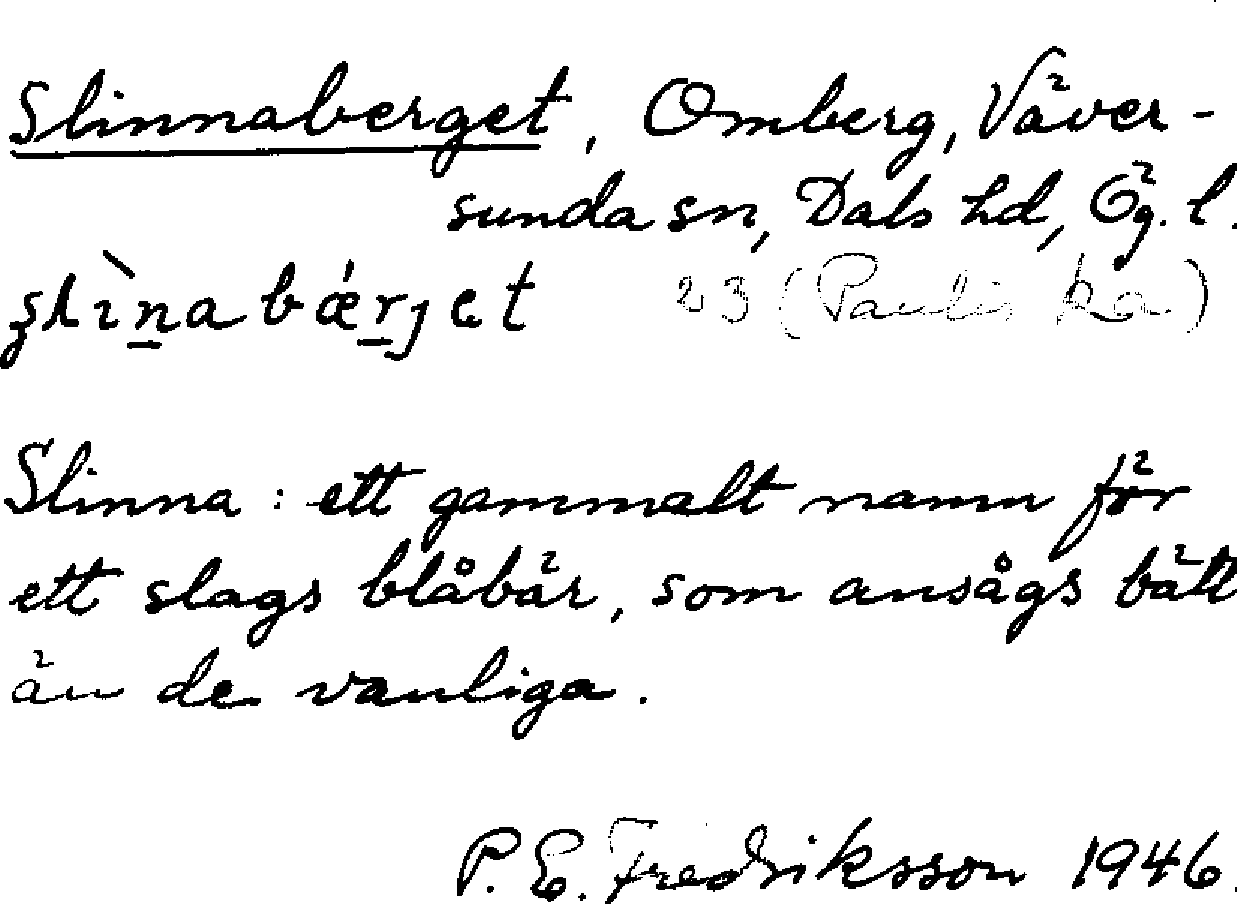 Slinnaberget, Omberg, Väver-
sunda sn, Dals hd, Ög. l.
23 (Paulis ka)
Slinna: ett gammalt namn för
ett slags blåbär, som ansågs bätt
än de vanliga.
P. E. Fredriksson 1946.